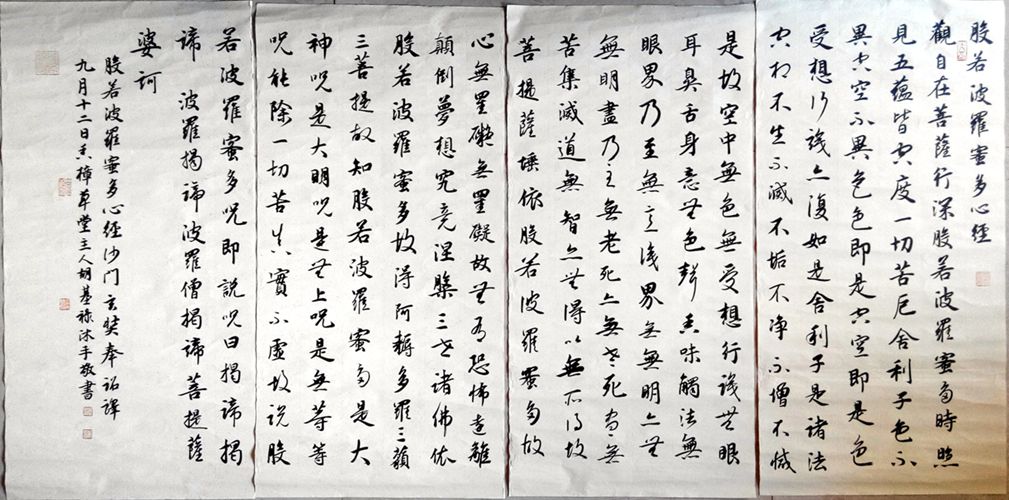 般若波羅蜜多心經
觀自在菩薩行深般若波羅蜜多時照
見五蘊皆空度一切苦厄舍利子色不
異空空不異色色即是空空即是色
受想行識亦復如是舍利子是諸法
空相不生不滅不垢不净不增不減
是故空中無色無受想行識無眼
耳鼻舌身意無色聲香味觸法無
眼界乃至無意識界無無明亦無
無明盡乃至無老死亦無老死盡無
苦集滅道無智亦無得以無所得故
菩提薩埵依般若波羅蜜多故
心無罣礙無罣礙故無有恐怖遠離
顛倒夢想究竟涅槃三世諸佛依
般若波羅蜜多故得阿耨多羅三藐
三菩提故知般若波羅蜜多是大
神呪是大明呪是無上呪是無等等
呪能除一切苦真實不虛故說般
若波羅蜜多呪即說呪曰揭諦揭
諦波羅揭諦波羅僧揭諦菩提薩
婆訶
般若波羅蜜多心經沙門玄奘奉詔譯
九月十二日香樟草堂主人胡基祿沐手敬書